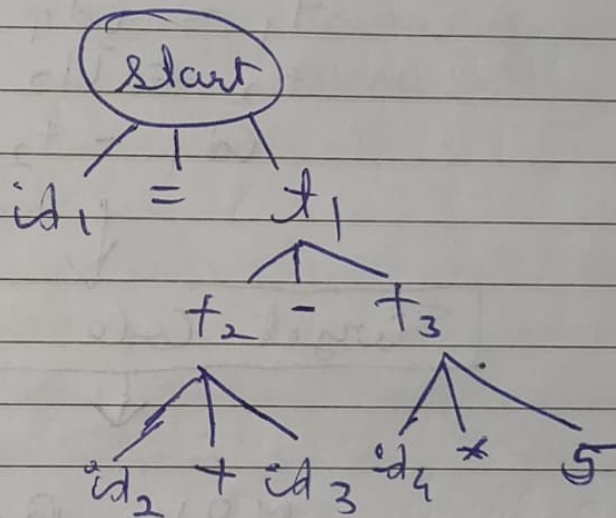 start
id₁ = t₁
t₂ - t₃
id₂ + id₃ id₄ * 5